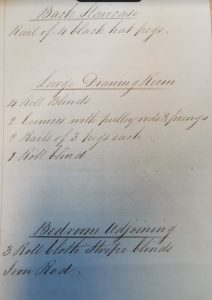 Back Staircase
Rail of 4 black hat pegs.
Large Drawing Room
4 Roll Blinds
2 Cornices with pulley rods & fixings
2 Rails of 3 pegs each.
1 Roll blind
Bedroom Adjoining
3 Roll Cloth Stripe blinds
Iron Rod.